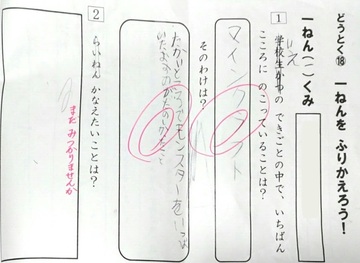 どうとく⑱ 一ねんを ふりかえろう！
一ねん（ ）くみ
1 学校生かつの できごとの中で、いちばん
いえ
こころに のこっていることは？
マインクラフト
そのわけは？
モンスターを
2 らいねん かなえたいことは？
まだ みつかりませんか